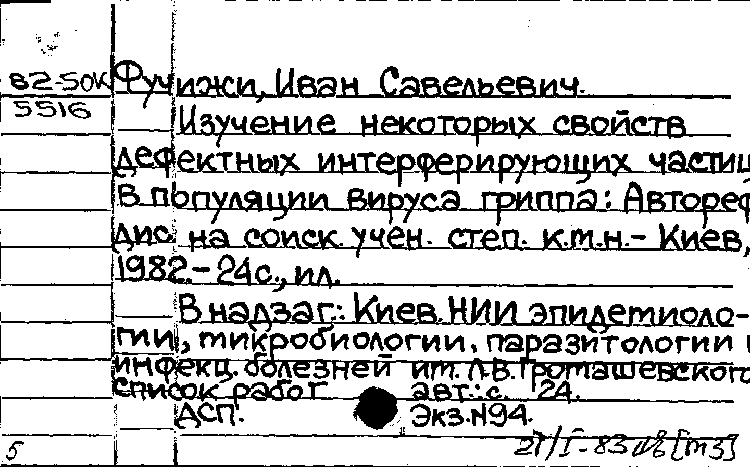 82-50К Фучижи, Иван Савельевич.
5516
Изучение некоторых свойств
дефектных интерферирующих частиц
в популяции вируса гриппа: Автореф
дис. на соиск. учен. степ. к.м.н.- Киев,
1982.- 24с., ил.
В надзаг.: Киев. НИИ эпидемиоло-
гии, микробиологии, паразитологии и
инфекц. болезней им. Л.В. Громашевского
список работ авт.: с. 24.
ДСП. Экз.№94.
5 27/I-83 [м3]